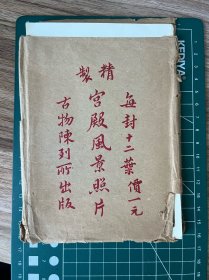 每封十二葉價一元
精製
宮殿風景照片
古物陳列所出版
KEDIYA